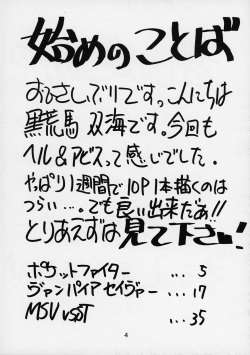 始めのことば
おひさしぶりです。こんにちは
黒荒馬 双海です。今回も
ヘル&アビスって感じでした.
やっぱり1週間で10P1本描くのは
つらい….でも良い出来だあ!!
とりあえずは見て下さい!
ポケットファイター … 5
ヴァンパイアセイヴァー … 17
MSU vs ST … 35
4